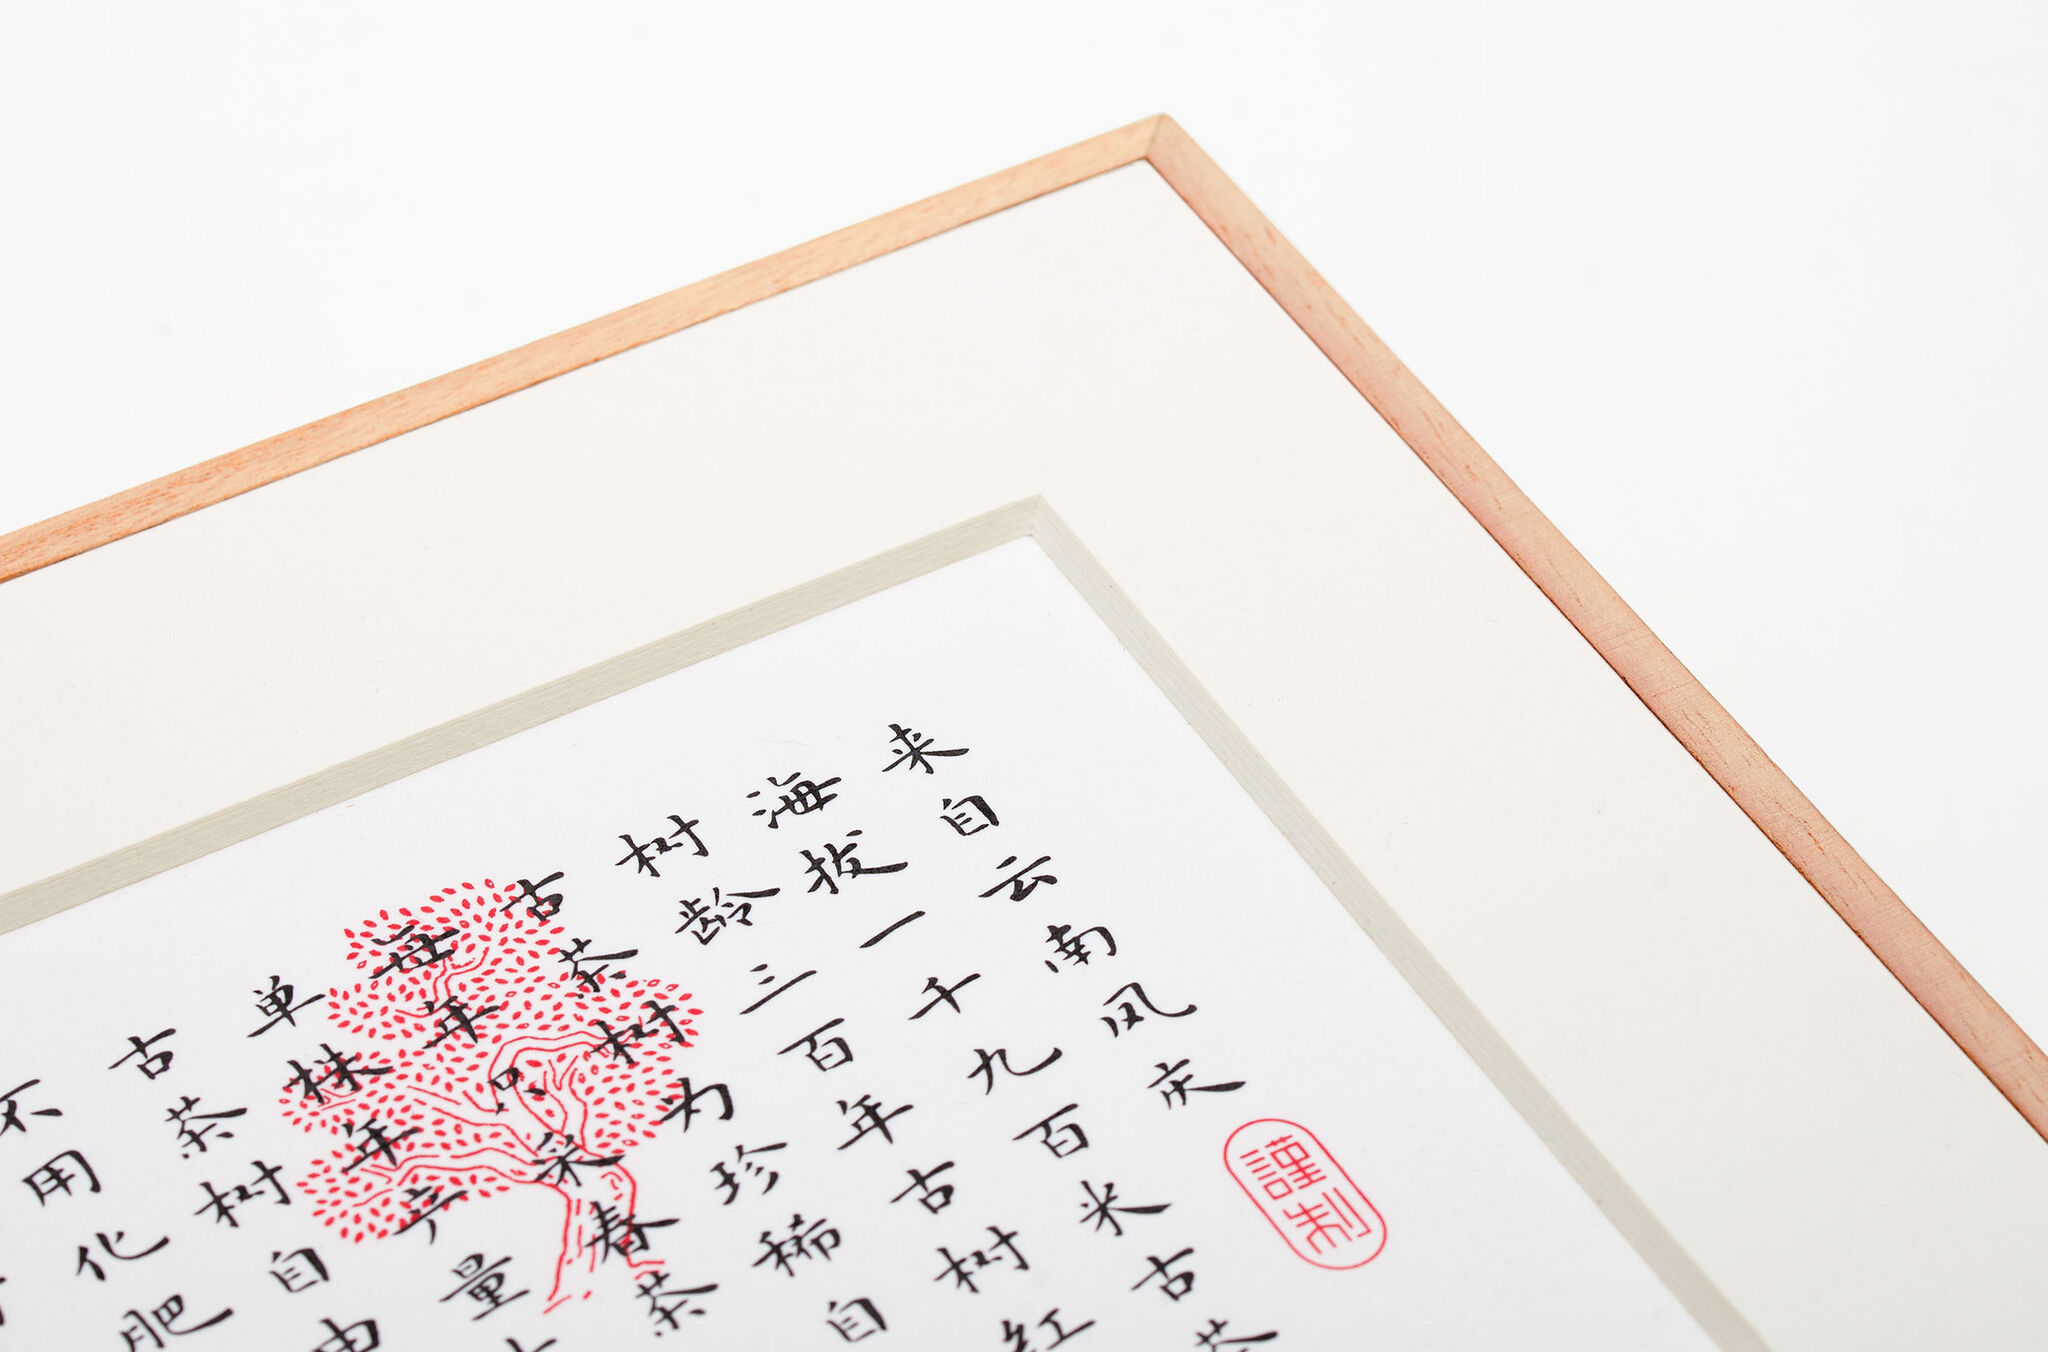 来自云南凤庆
謹制
海拔一千九百米古茶
树龄三百年古树红
古茶树为珍稀自
每年只采春茶
单株年产量
古茶树自由
不用化肥